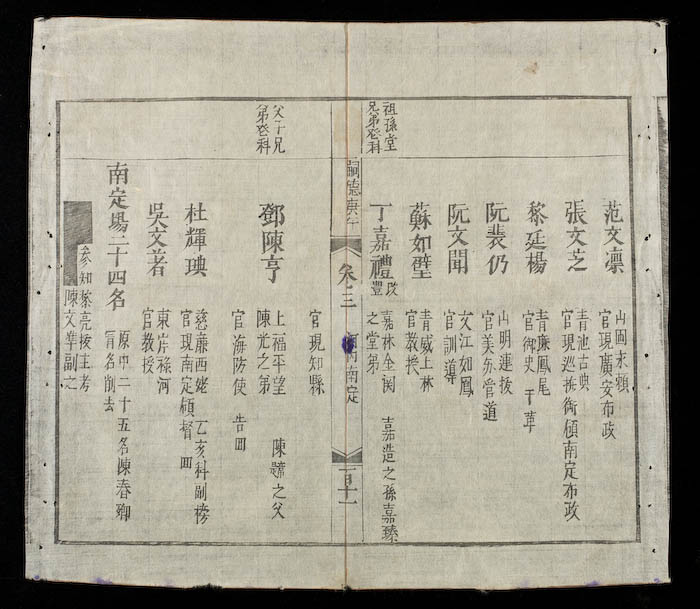 祖孫堂
兄弟登科
范文凛
山圍末領
官現廣安布政
張文芝
青池古典
官現巡撫銜領南定布政
黎廷楊
青廉鳳尾
官御史 干革
阮裴仍
山明連拔
官美亦管道
阮文聞
文江如鳳
官訓導
蘇如璧
青威上林
官教授
丁嘉禮 改豐
嘉林金関 嘉造之孫嘉臻
之堂弟
官現知縣
嗣德庚午
卷三
河内南定
百十一
父子兄
弟登科
鄧陳亨
上福平望 陳
之父
陳光之弟
官海防使 告回
杜輝琠
慈廉西姥 乙亥科副榜
官現南定領督 回
吳文著
東岸祿河
官教授
南定場二十四名
原中二十五名陳春卿
冐名削去
參知黎亮拔主考
陳文準副之